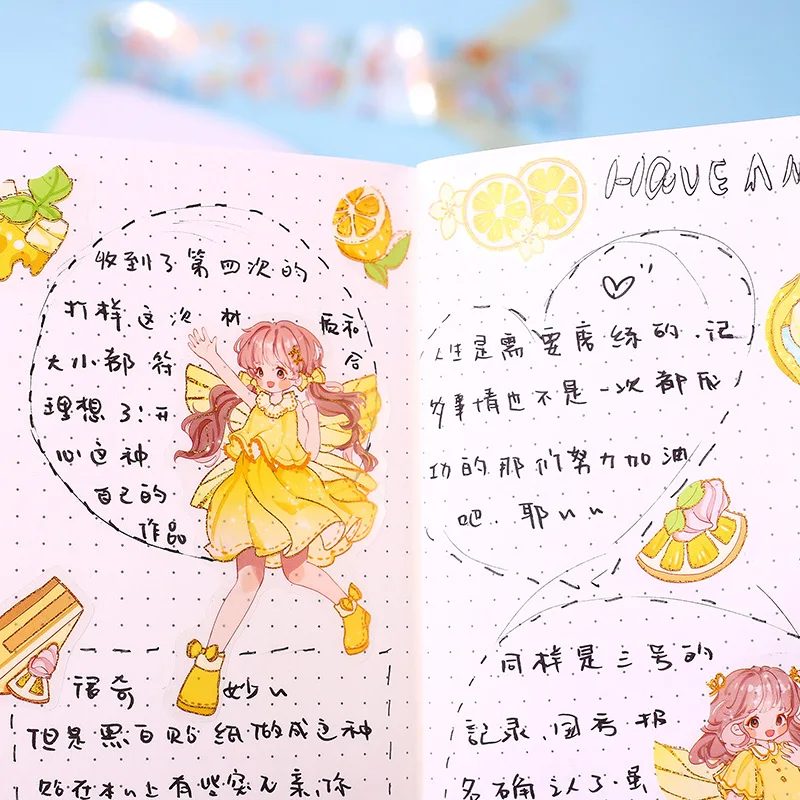 收到了第四次的
打样，这次材质和
大小都符合
理想了！开
心这种
自己的
作品
很奇妙~
但是黑白贴纸做成这种
贴在本~上有些突兀亲，你
HAVE AN
人生是需要磨练的，记
多事情也不是一次都成
功的那们努力加油
吧，耶~~
同样是三号的
記录，国考报
名确认了，虽